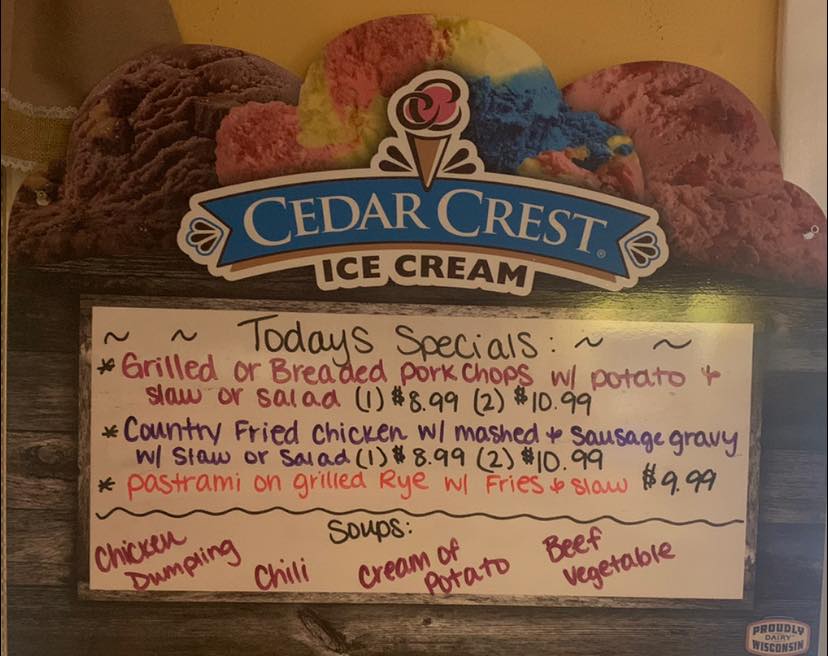 CEDAR CREST®
ICE CREAM
~ ~ Todays Specials: ~ ~
* Grilled or Breaded pork chops w/ potato +
slaw or salad (1) $8.99 (2) $10.99
* Country Fried Chicken w/ mashed + sausage gravy
w/ slaw or salad (1) $8.99 (2) $10.99
* pastrami on grilled Rye w/ Fries + slaw $9.99
Soups:
Chicken
Dumpling
Chili
Cream of
Potato
Beef
Vegetable
PROUDLY
DAIRY
WISCONSIN